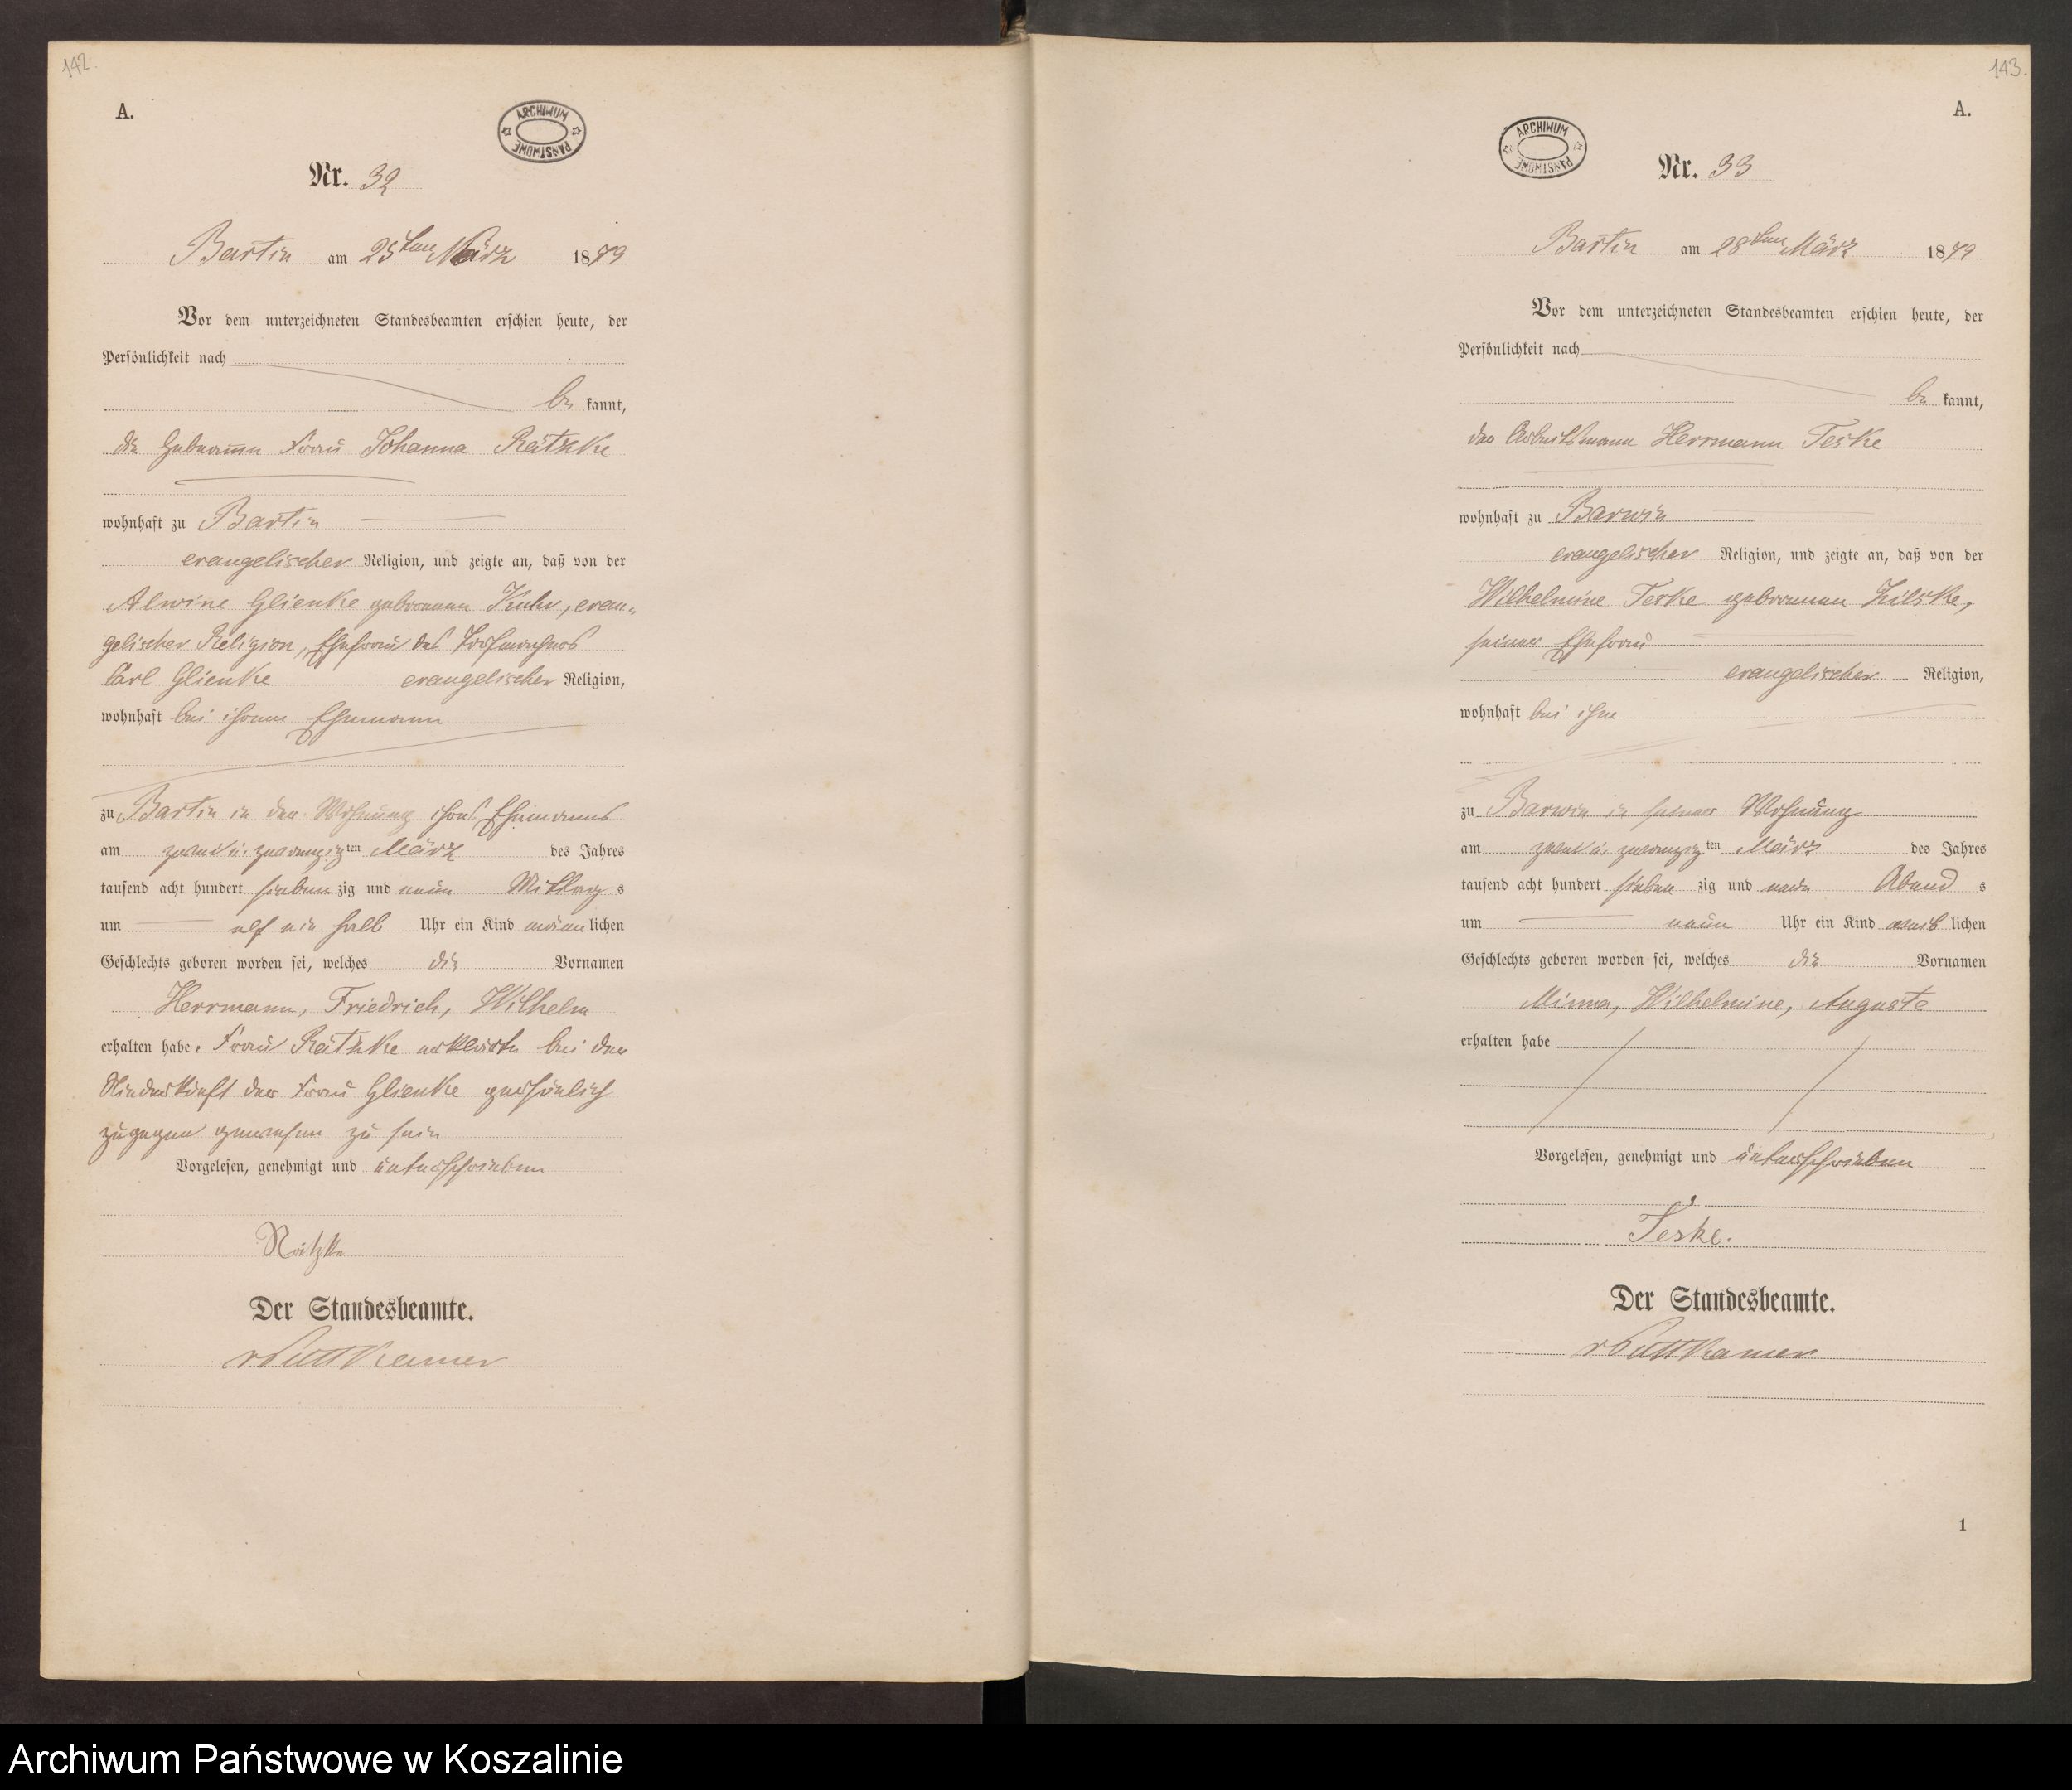 142.
A.
ARCHIWUM PAŃSTWOWE
Nr. 32
Bartin am 25ten März 1879
Vor dem unterzeichneten Standesbeamten erschien heute, der
Persönlichkeit nach
be kannt,
die Hebamme Frau Johanna Rätzke
wohnhaft zu Bartin
evangelischer Religion, und zeigte an, daß von der
Alwine Glienke geborenen Kuhr, evan-
gelischer Religion, Ehefrau des
Carl Glienke evangelischer Religion,
wohnhaft bei ihrem Ehemann
zu Bartin in der Wohnung ihres Ehemanns
am zwei u. zwanzigten März des Jahres
tausend acht hundert siebenzig und neun Mittags
um elf ein halb Uhr ein Kind männlichen
Geschlechts geboren worden sei, welches die Vornamen
Herrmann, Friedrich, Wilhelm
erhalten habe. Frau Rätzke erklärte bei der
Niederkunft der Frau Glienke persönlich
zugegen gewesen zu sein
Vorgelesen, genehmigt und unterschrieben
Rätzke
Der Standesbeamte.
v Puttkamer
143.
A.
ARCHIWUM PAŃSTWOWE
Nr. 33
Bartin am 28ten März 1879
Vor dem unterzeichneten Standesbeamten erschien heute, der
Persönlichkeit nach
be kannt,
der Arbeitsmann Herrmann Teske
wohnhaft zu Barwin
evangelischer Religion, und zeigte an, daß von der
Wilhelmine Teske geborenen Zilske,
seiner Ehefrau
evangelischer Religion,
wohnhaft bei ihm
zu Barwin in seiner Wohnung
am zwei u. zwanzigten März des Jahres
tausend acht hundert siebenzig und neun Abends
um neun Uhr ein Kind weiblichen
Geschlechts geboren worden sei, welches die Vornamen
Minna, Wilhelmine, Auguste
erhalten habe
Vorgelesen, genehmigt und unterschrieben
Teske.
Der Standesbeamte.
v Puttkamer
1
Archiwum Państwowe w Koszalinie